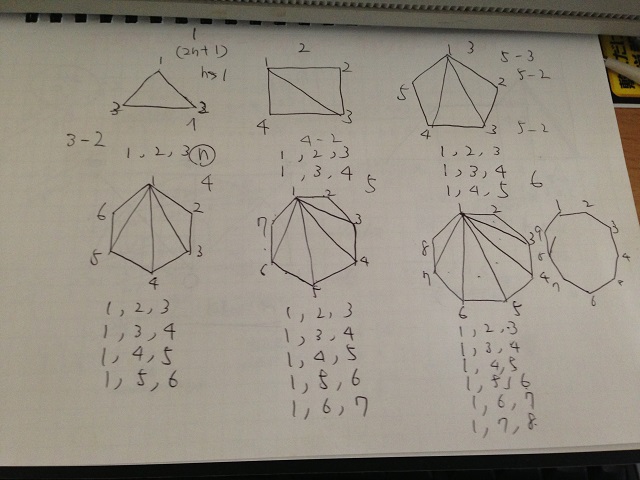 1
(2n+1)
n≥1
1
3 2
1
3-2
1, 2, 3 n
2
1 2
4 3
4-2
1, 2, 3
1, 3, 4
3
1
5 2
4 3
5-3
5-2
5-2
1, 2, 3
1, 3, 4
1, 4, 5
4
1
6 2
5 3
4
1, 2, 3
1, 3, 4
1, 4, 5
1, 5, 6
5
1 2
7 3
6 4
5
1, 2, 3
1, 3, 4
1, 4, 5
1, 5, 6
1, 6, 7
6
1 2
8 3
7 4
6 5
1, 2, 3
1, 3, 4
1, 4, 5
1, 5, 6
1, 6, 7
1, 7, 8
1 2
9 3
8 4
7
6